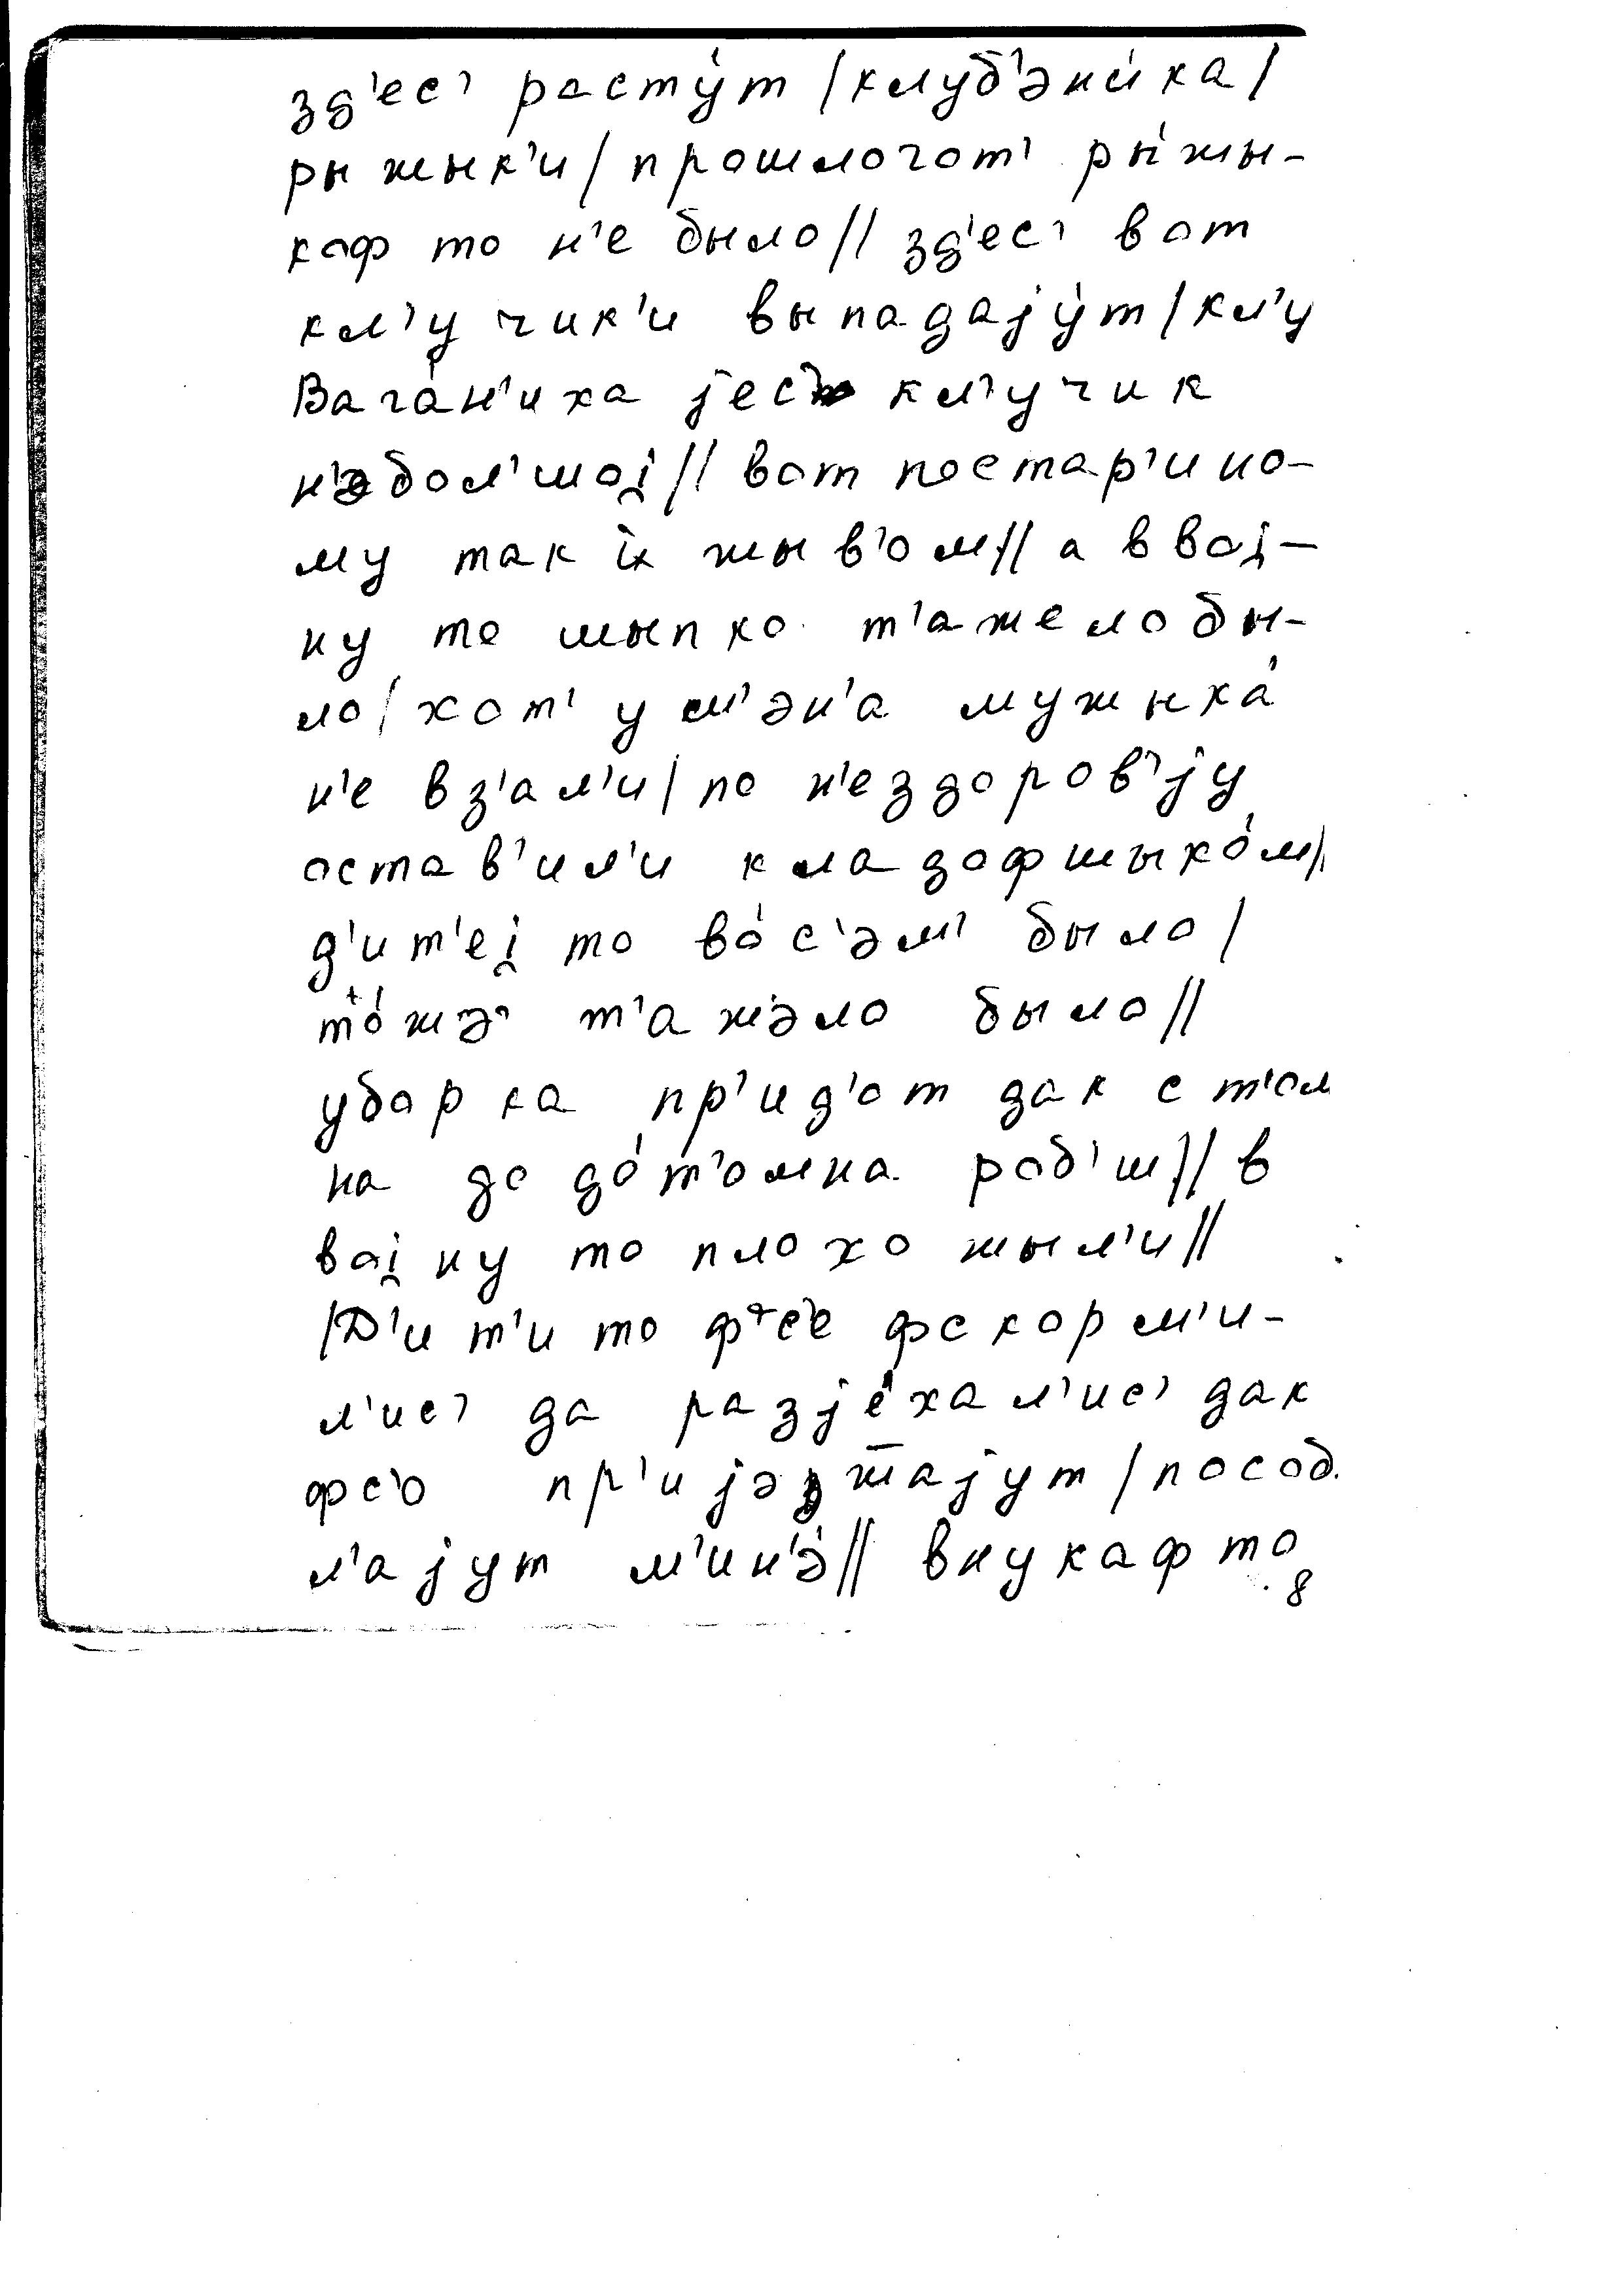 зд'ес' расту́т /клуб'эни́ка/
рыжык'и/ прошлогот' ры́жы-
каф то н'е было// зд'ес' вот
кл'учик'и выпадају́т/кл'у
Вага́н'иха јес' кл'учик
н'эбол'шој// вот постар'ино-
му так и жыв'ом// а ввој-
ну то шыпко т'ажело бы-
ло/ хот' у м'эн'а мужыка́
н'е вз'ал'и/ по н'ездоров'ју
остав'ил'и кладофшыко́м//
д'ит'еј то во́с'эм' было/
то́жэ т'ажэло было//
уборка пр'ид'от дак с т'ом
на до до́т'омна роб'иш// в
војну то плохо жыл'и//
/Д'ит'и то ф'с'е фскорм'и-
л'ис' да разје́хал'ис' дак
фс'о пр'ијэзжајут/пособ
л'ајут м'ин'э́// внукаф то
8